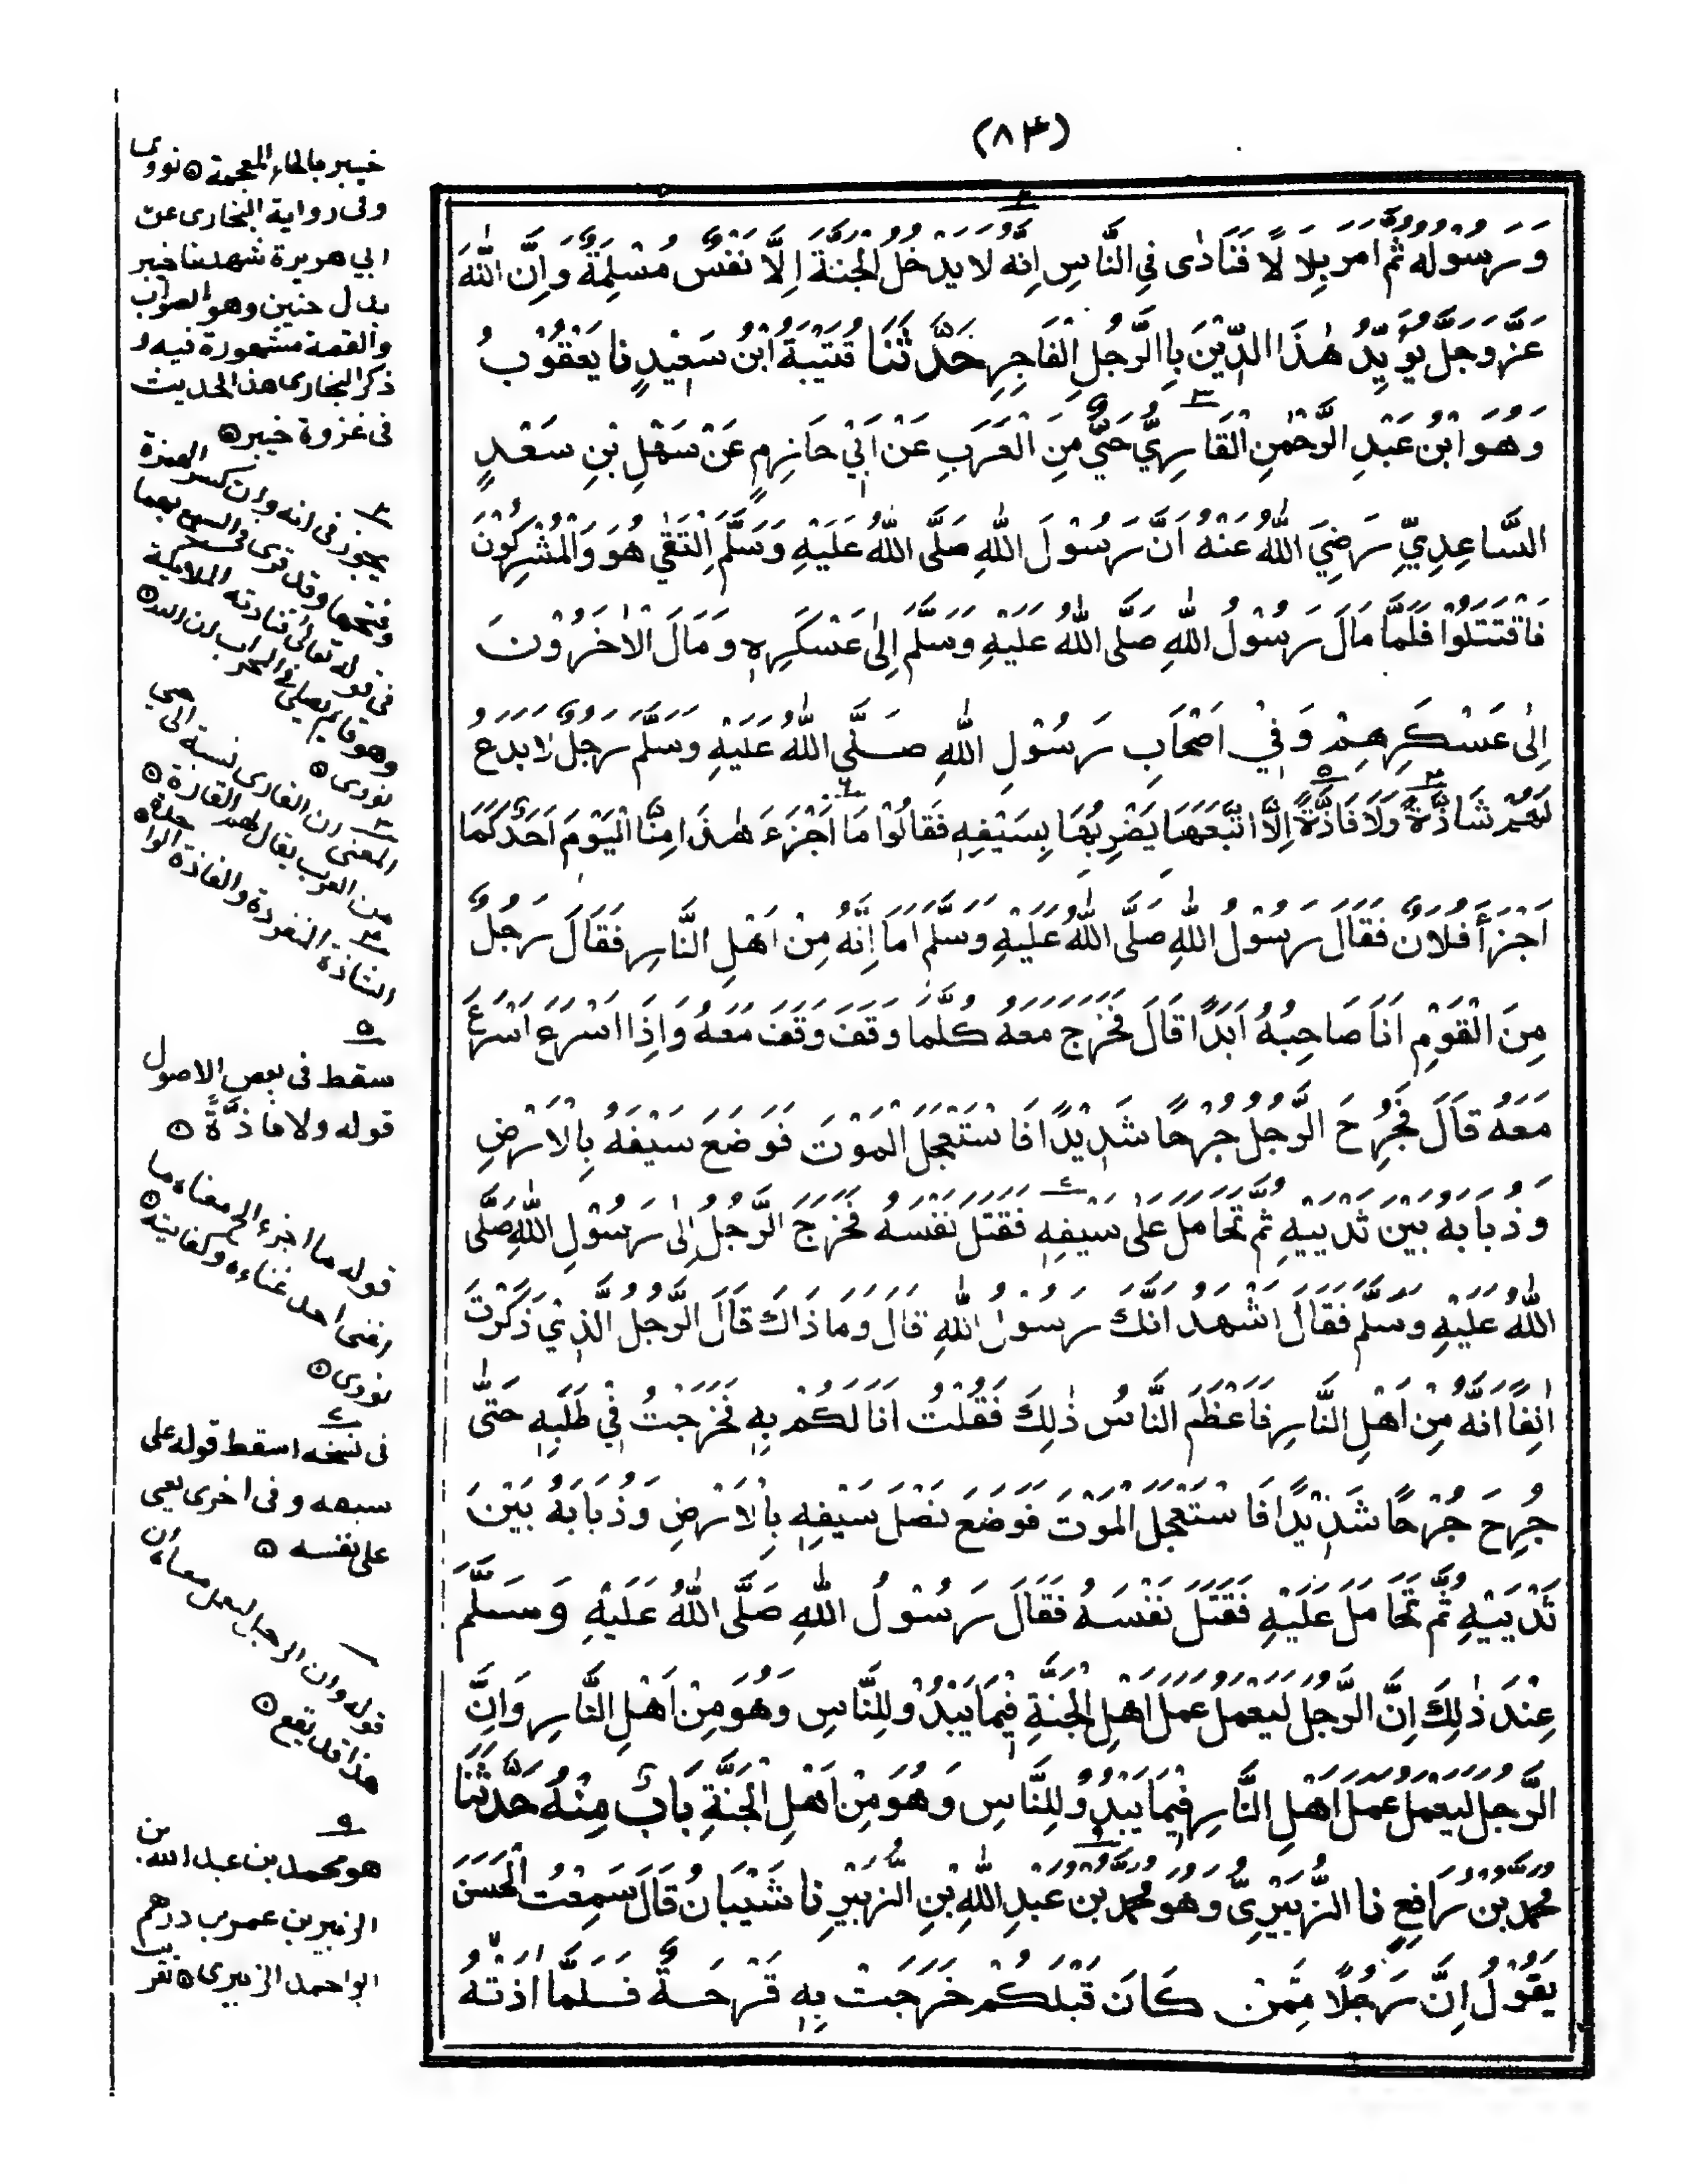 (٨٣)
وَرَسُوْلُهُ ثُمَّ اَمَرَ بِلَا لًا فَنَادٰى فِي النَّاسِ اِنَّهُ لَا يَدْخُلُ الْجَنَّةَ اِلَّا نَفْسٌ مُسْلِمَةٌ وَاِنَّ اللّٰهَ
عَزَّ وَجَلَّ يُؤَيِّدُ هٰذَا الدِّيْنَ بِاالرَّجُلِ الْفَاجِرِ حَدَّثَنَا قُتَيْبَةُ ابْنُ سَعِيْدٍ نا يَعْقُوْبُ
وَهُوَ ابْنُ عَبْدِ الرَّحْمٰنِ الْقَارِيُّ حَيٌّ مِنَ الْعَرَبِ عَنْ اَبِيْ حَازِمٍ عَنْ سَهْلِ بْنِ سَعْدٍ
السَّاعِدِيِّ رَضِيَ اللّٰهُ عَنْهُ اَنَّ رَسُوْلَ اللّٰهِ صَلَّى اللّٰهُ عَلَيْهِ وَسَلَّمَ اِلْتَقٰى هُوَ وَالْمُشْرِكُوْنَ
فَاقْتَتَلُوْا فَلَمَّا مَالَ رَسُوْلُ اللّٰهِ صَلَّى اللّٰهُ عَلَيْهِ وَسَلَّمَ اِلٰى عَسْكَرِهٖ وَمَالَ الْاٰخَرُوْنَ
اِلٰى عَسْكَرِهِمْ وَفِيْ اَصْحَابِ رَسُوْلِ اللّٰهِ صَلَّى اللّٰهُ عَلَيْهِ وَسَلَّمَ رَجُلٌ لَا يَدَعُ
لَهُمْ شَاذَّةً وَلَا فَاذَّةً اِلَّا اتَّبَعَهَا يَضْرِبُهَا بِسَيْفِهٖ فَقَالُوْا مَا اَجْزَءَ هٰذَا مِنَّا الْيَوْمَ اَحَدٌ كَمَا
اَجْزَأَ فُلَانٌ فَقَالَ رَسُوْلُ اللّٰهِ صَلَّى اللّٰهُ عَلَيْهِ وَسَلَّمَ اَمَا اِنَّهُ مِنْ اَهْلِ النَّارِ فَقَالَ رَجُلٌ
مِنَ الْقَوْمِ اَنَا صَاحِبُهُ اَبَدًا قَالَ فَخَرَجَ مَعَهُ كُلَّمَا وَقَفَ وَقَفَ مَعَهُ وَاِذَا اَسْرَعَ اَسْرَعَ
مَعَهُ قَالَ فَجُرِحَ الرَّجُلُ جُرْحًا شَدِيْدًا فَاسْتَعْجَلَ الْمَوْتَ فَوَضَعَ سَيْفَهُ بِالْاَرْضِ
وَذُبَابَهُ بَيْنَ ثَدْيَيْهِ ثُمَّ تَحَامَلَ عَلٰى سَيْفِهٖ فَقَتَلَ نَفْسَهُ فَخَرَجَ الرَّجُلُ اِلٰى رَسُوْلِ اللّٰهِ صَلَّى
اللّٰهُ عَلَيْهِ وَسَلَّمَ فَقَالَ اَشْهَدُ اَنَّكَ رَسُوْلُ اللّٰهِ قَالَ وَمَا ذَاكَ قَالَ الرَّجُلُ الَّذِيْ ذَكَرْتَ
اٰنِفًا اَنَّهُ مِنْ اَهْلِ النَّارِ فَاَعْظَمَ النَّاسُ ذٰلِكَ فَقُلْتُ اَنَا لَكُمْ بِهٖ فَخَرَجْتُ فِيْ طَلَبِهٖ حَتّٰى
جُرِحَ جُرْحًا شَدِيْدًا فَاسْتَعْجَلَ الْمَوْتَ فَوَضَعَ نَصْلَ سَيْفِهٖ بِالْاَرْضِ وَذُبَابَهُ بَيْنَ
ثَدْيَيْهِ ثُمَّ تَحَامَلَ عَلَيْهِ فَقَتَلَ نَفْسَهُ فَقَالَ رَسُوْلُ اللّٰهِ صَلَّى اللّٰهُ عَلَيْهِ وَسَلَّمَ
عِنْدَ ذٰلِكَ اِنَّ الرَّجُلَ لَيَعْمَلُ عَمَلَ اَهْلِ الْجَنَّةِ فِيْمَا يَبْدُوْ لِلنَّاسِ وَهُوَ مِنْ اَهْلِ النَّارِ وَاِنَّ
الرَّجُلَ لَيَعْمَلُ عَمَلَ اَهْلِ النَّارِ فِيْمَا يَبْدُوْ لِلنَّاسِ وَهُوَ مِنْ اَهْلِ الْجَنَّةِ بَابٌ مِنْهُ حَدَّثَنَا
مُحَمَّدُ بْنُ رَافِعٍ نا الزُّبَيْرِيُّ وَهُوَ مُحَمَّدُ بْنُ عَبْدِ اللّٰهِ بْنِ الزُّبَيْرِ نا شَيْبَانُ قَالَ سَمِعْتُ الْحَسَنَ
يَقُوْلُ اِنَّ رَجُلًا مِمَّنْ كَانَ قَبْلَكُمْ خَرَجَتْ بِهٖ قَرْحَةٌ فَلَمَّا اٰذَتْهُ
خيبر بالخاء المعجمة ٥ نووى
وفى رواية البخارى عن
ابي هريرة شهدنا خيبر
بدل حنين وهو الصواب
والقصة مشهورة فيه و
ذكر البخارى هذا الحديث
فى غزوة خيبر ٥
٢
يجوز فى انه وان كسر الهمزة
وفتحها وقد قرى فى السبع بهما
فى قوله تعالى فنادته الملائكة
وهو قايم يصلى فى المحراب ان الله ٥
نووى ٥
٣
المعنى ان القارى نسبة الى حي
من العرب يقال لهم القارة ٥
٤
الشاذة المنفردة والفاذة الواحدة ٥
٥
سقط فى بعض الاصول
قوله ولا فاذَّةً ٥
قوله ما اجزء الخ معناه ما
اغنى احد غناءه وكفايته ٥
نووى ٥
ع
فى نسخه اسقط قوله على
سيفه و فى اخرى يعنى
على نفسه ٥
قوله وان الرجل ليعمل معناه ان
هذا قد يقع ٥
٩
هو محمد بن عبد الله بن
الزبير بن عمر بن درهم
ابو احمد الزبيرى ٥ تقريب